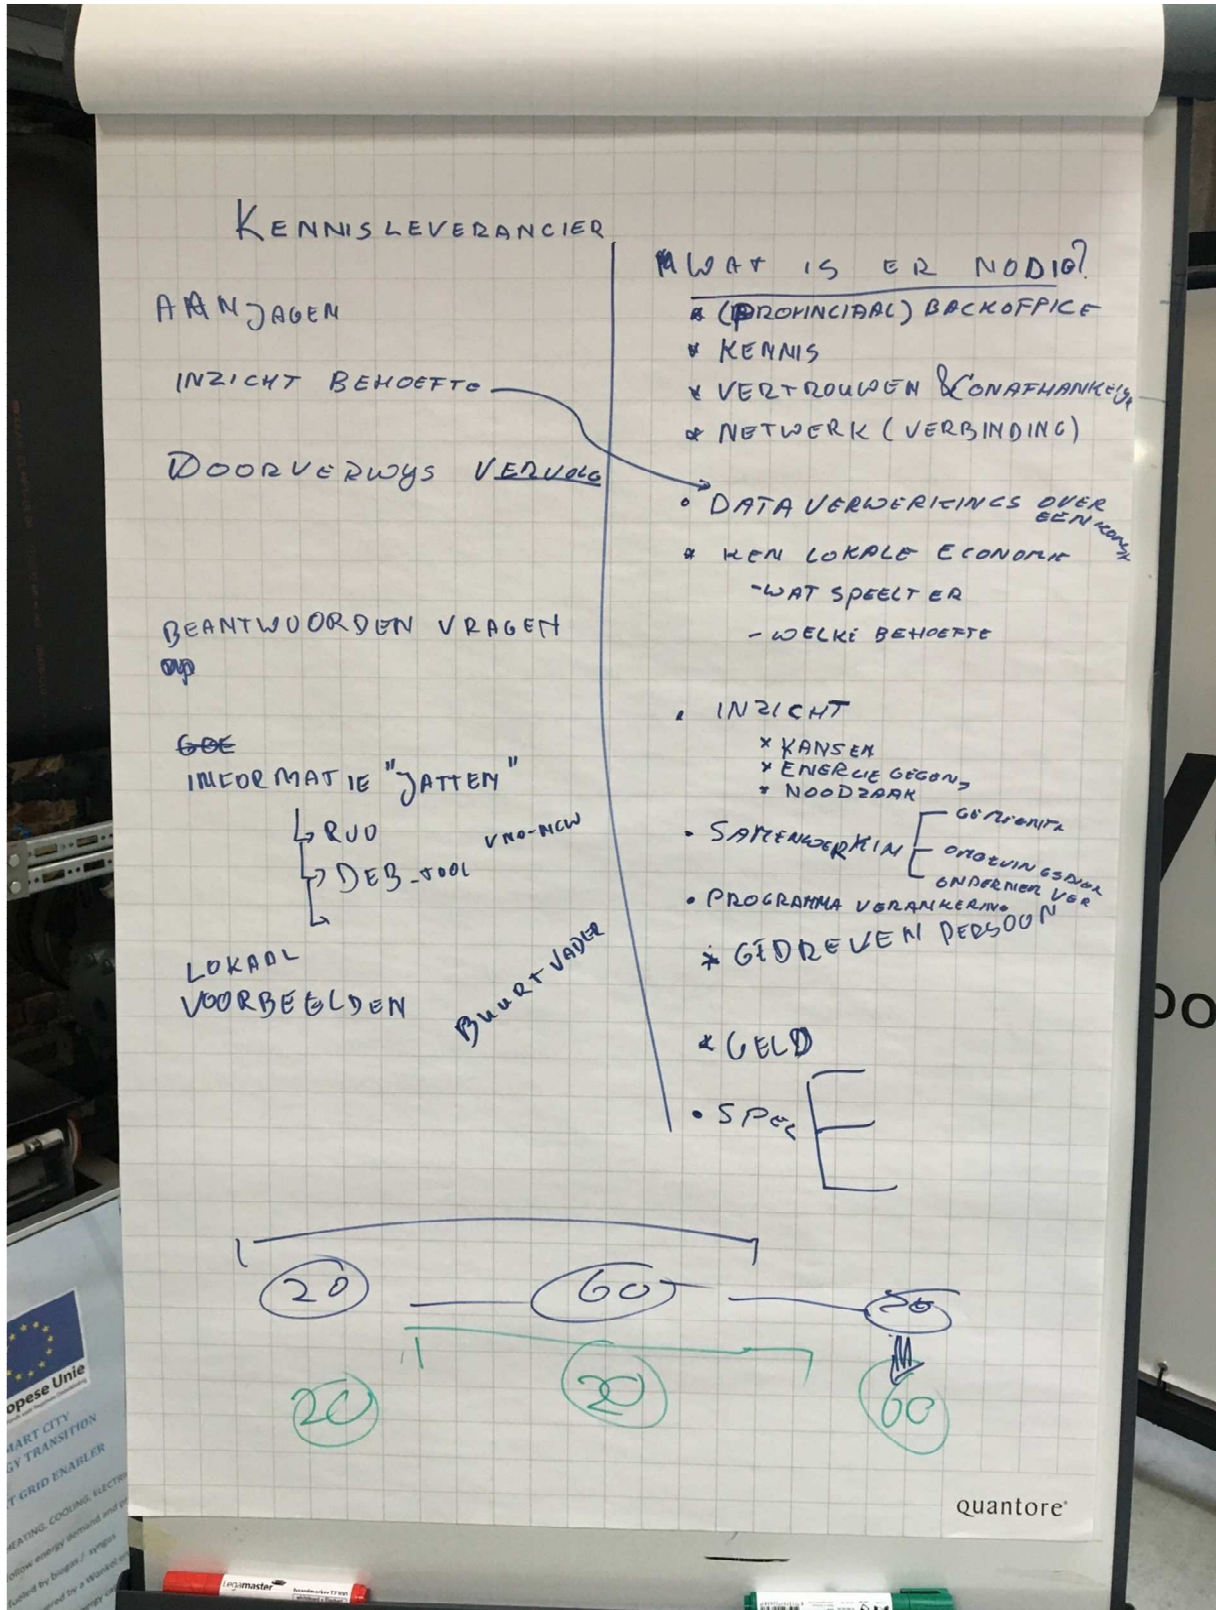 KENNISLEVERANCIER
AANJAGEN
INZICHT BEHOEFTE
DOORVERWYS VERVOLG
BEANTWOORDEN VRAGEN
op
GOE
INFORMATIE "JATTEN"
RVO
VNO-NCW
DEB-TOOL
LOKAAL
VOORBEELDEN
BUURTVADER
WAT IS ER NODIG?
* (PROVINCIAAL) BACKOFFICE
* KENNIS
* VERTROUWEN & ONAFHANKELYK
* NETWERK (VERBINDING)
• DATA VERWERKINGS OVER
EENKOMST
* KEN LOKALE ECONOMIE
- WAT SPEELT ER
- WELKE BEHOEFTE
• INZICHT
* KANSEN
* ENERGIE GEGEVENS
* NOODZAAK
GEMEENTE
• SAMENWERKIN
OMGEVINGSDIENST
ONDERNEMER VER
• PROGRAMMA VERANKERING
* GEDREVEN PERSOON
* GELD
• SPEL
20 60 20
20 20 60
quantore
opese Unie
MART CITY
GY TRANSITION
T GRID ENABLER
HEATING, COOLING, ELECTRI
ollow energy demand and p
fueled by biogas / syngas
Legamaster